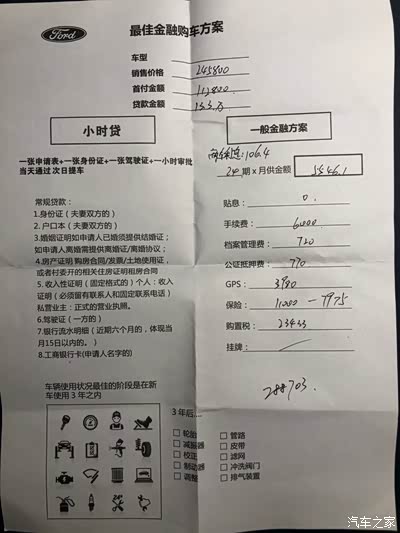 Ford
最佳金融购车方案
车型
销售价格 245800
首付金额 112800
贷款金额 13.3万
小时贷
一般金融方案
一张申请表+一张身份证+一张驾驶证+一小时审批
当天通过次日提车
106.4
24期 x 月供金额 5546.1
常规贷款：
1.身份证（夫妻双方的）
2.户口本（夫妻双方的）
3.婚姻证明如申请人已婚须提供结婚证；
如申请人离婚需提供离婚证/离婚协议；
4.房产证明 购房合同/发票/土地使用证，
或者村委开的相关住房证明租房合同
5.收入性证明（固定格式的）个人：收入
证明（必须留有联系人和固定联系电话）
私营业主：正式的营业执照。
6.驾驶证（一方的）
7.银行流水明细（近期六个月的，体现当
月15日以内的。）
8.工商银行卡(申请人名字的)
贴息： 0.
手续费： 6000
档案管理费： 720
公证抵押费： 770
GPS： 3980
保险： 11000 — 7975
购置税： 23433
挂牌：
288703.
车辆使用状况最佳的阶段是在新
车使用 3 年之内
3 年后....
轮胎
减振器
校正
制动器
调整
管路
皮带
滤网
冲洗阀门
排气装置
汽车之家